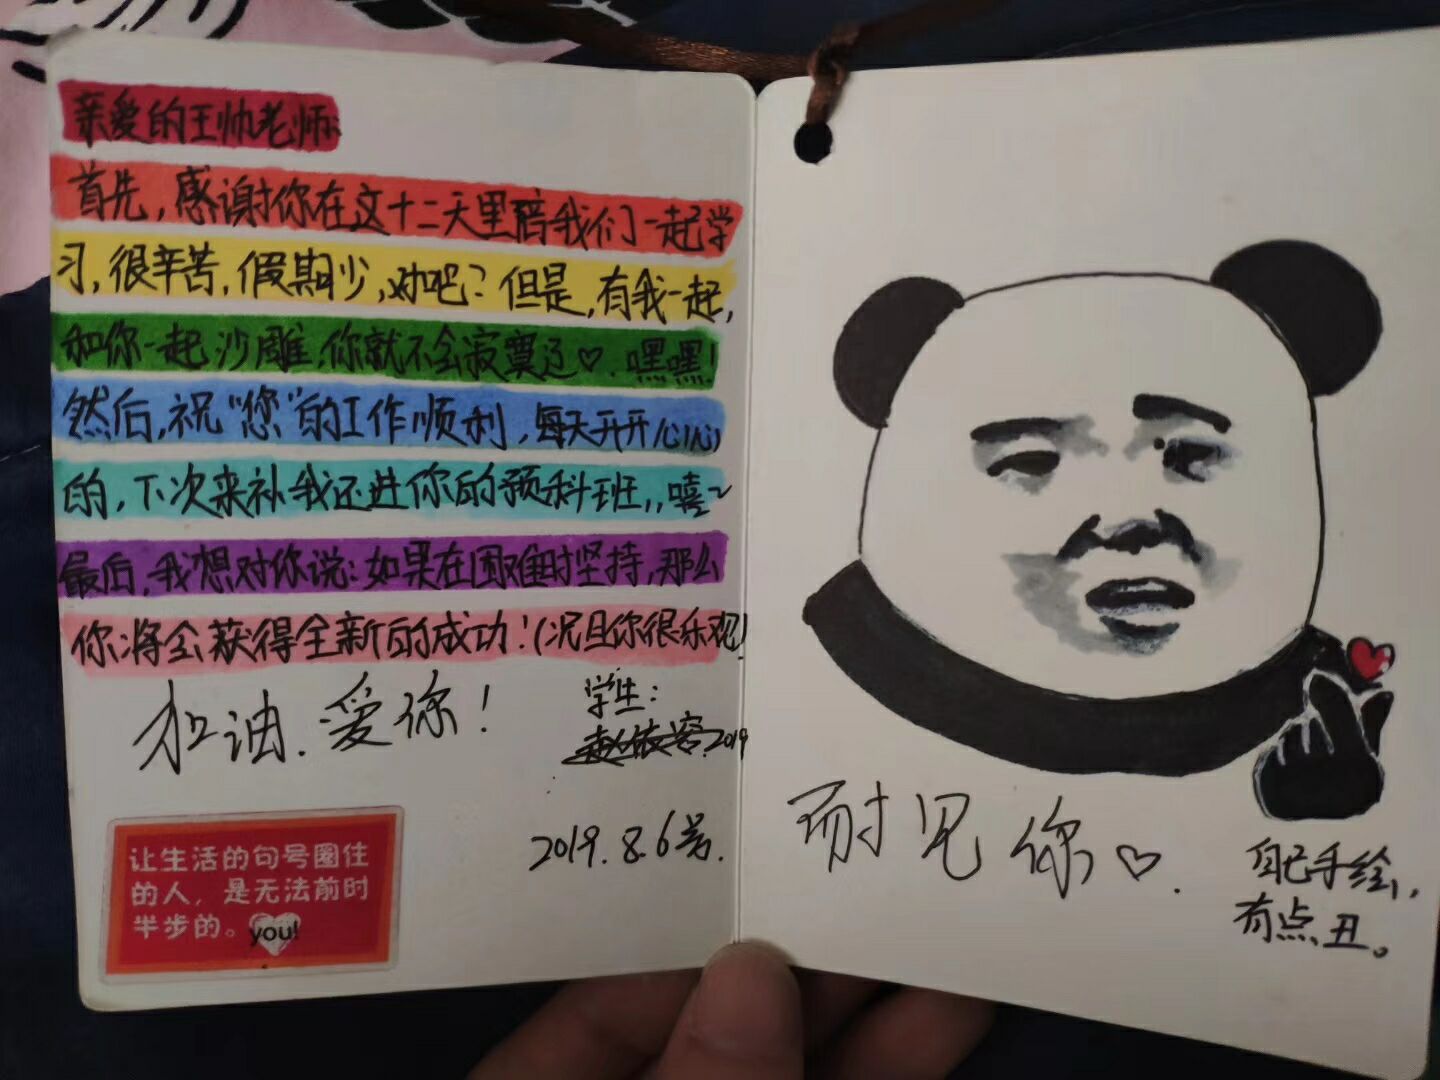 亲爱的王帅老师:
首先,感谢你在这十二天里陪我们一起学
习,很辛苦,假期少,对吧?但是,有我一起,
和你一起沙雕,你就不会寂寞过♡.嘿嘿!
然后,祝"您"的工作顺利,每天开开心心
的,下次来补我还进你的预科班,,嘻~
最后,我想对你说:如果在困难时坚持,那么
你将会获得全新的成功!(况且你很乐观!
加油.爱你!
学生:
2019
2019.8.6号.
让生活的句号圈住
的人,是无法前时
半步的。
you!
耐见你♡.
自己手绘,
有点丑。